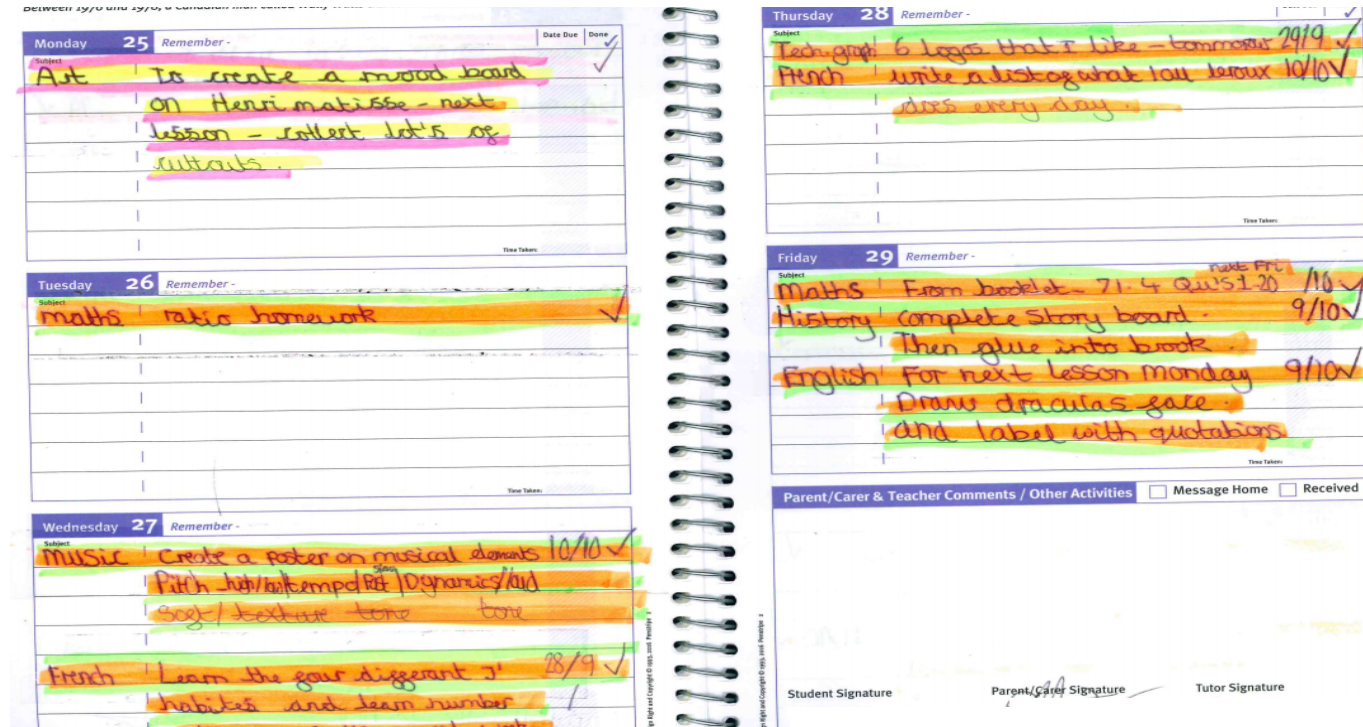 Monday 25 Remember - Date Due Done
Subject
Art To create a mood board
on Henri matisse - next
lesson - collect lot's of
cuttouts.
Time Taken:
Tuesday 26 Remember -
Subject
maths ratio homework
Time Taken:
Wednesday 27 Remember -
Subject
MUSIC Create a poster on musical elements 10/10
Pitch - high/low/tempo/fast slow/Dynamics/loud
soft/texture tone tone
French Learn the four different 'J' 28/9
habites and learn number
Thursday 28 Remember -
Subject
Tech graph 6 logos that I like - tommorow 29/9
French write a list of what lou leroux 10/10
does every day.
Time Taken:
Friday 29 Remember -
Subject
next Fri
Maths From booklet - 71.4 Qu's 1-20 /10
History complete Story board. 9/10
Then glue into book
English For next lesson monday 9/10
Draw draculas face.
and label with quotations
Time Taken:
Parent/Carer & Teacher Comments / Other Activities Message Home Received
Student Signature Parent/Carer Signature Tutor Signature